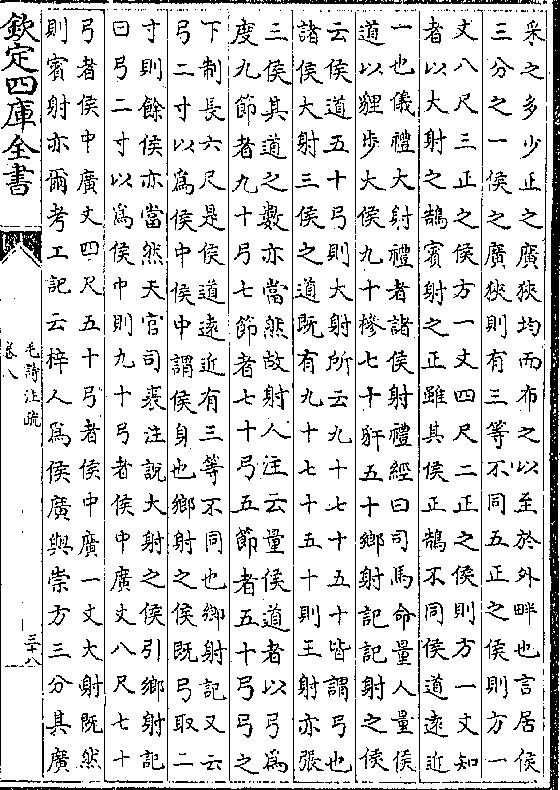 采之多少正之廣狹均而布之以至於外畔也言居侯
三分之一侯之廣狹則有三等不同五正之侯則方一
丈八尺三正之侯方一丈四尺二正之侯則方一丈知
者以大射之鵠賓射之正雖其侯正鵠不同侯道遠近
一也儀禮大射禮者諸侯射禮經曰司馬命量人量侯
道以貍步大侯九十糝七十豻五十鄉射記記射之侯
云侯道五十弓則大射所云九十七十五十皆謂弓也
諸侯大射三侯之道既有九十七十五十則王射亦張
三侯其道之數亦當然故射人注云量侯道者以弓爲
度九節者九十弓七節者七十弓五節者五十弓弓之
下制長六尺是侯道遠近有三等不同也鄉射記又云
弓二寸以爲侯中侯中謂侯身也鄉射之侯既弓取二
寸則餘侯亦當然天官司裘注說大射之侯引鄉射記
曰弓二寸以爲侯中則九十弓者侯中廣丈八尺七十
弓者侯中廣丈四尺五十弓者侯中廣一丈大射既然
則賓射亦爾考工記云梓人爲侯廣與崇方三分其廣
欽定四庫全書
毛詩注疏
卷八
三十八